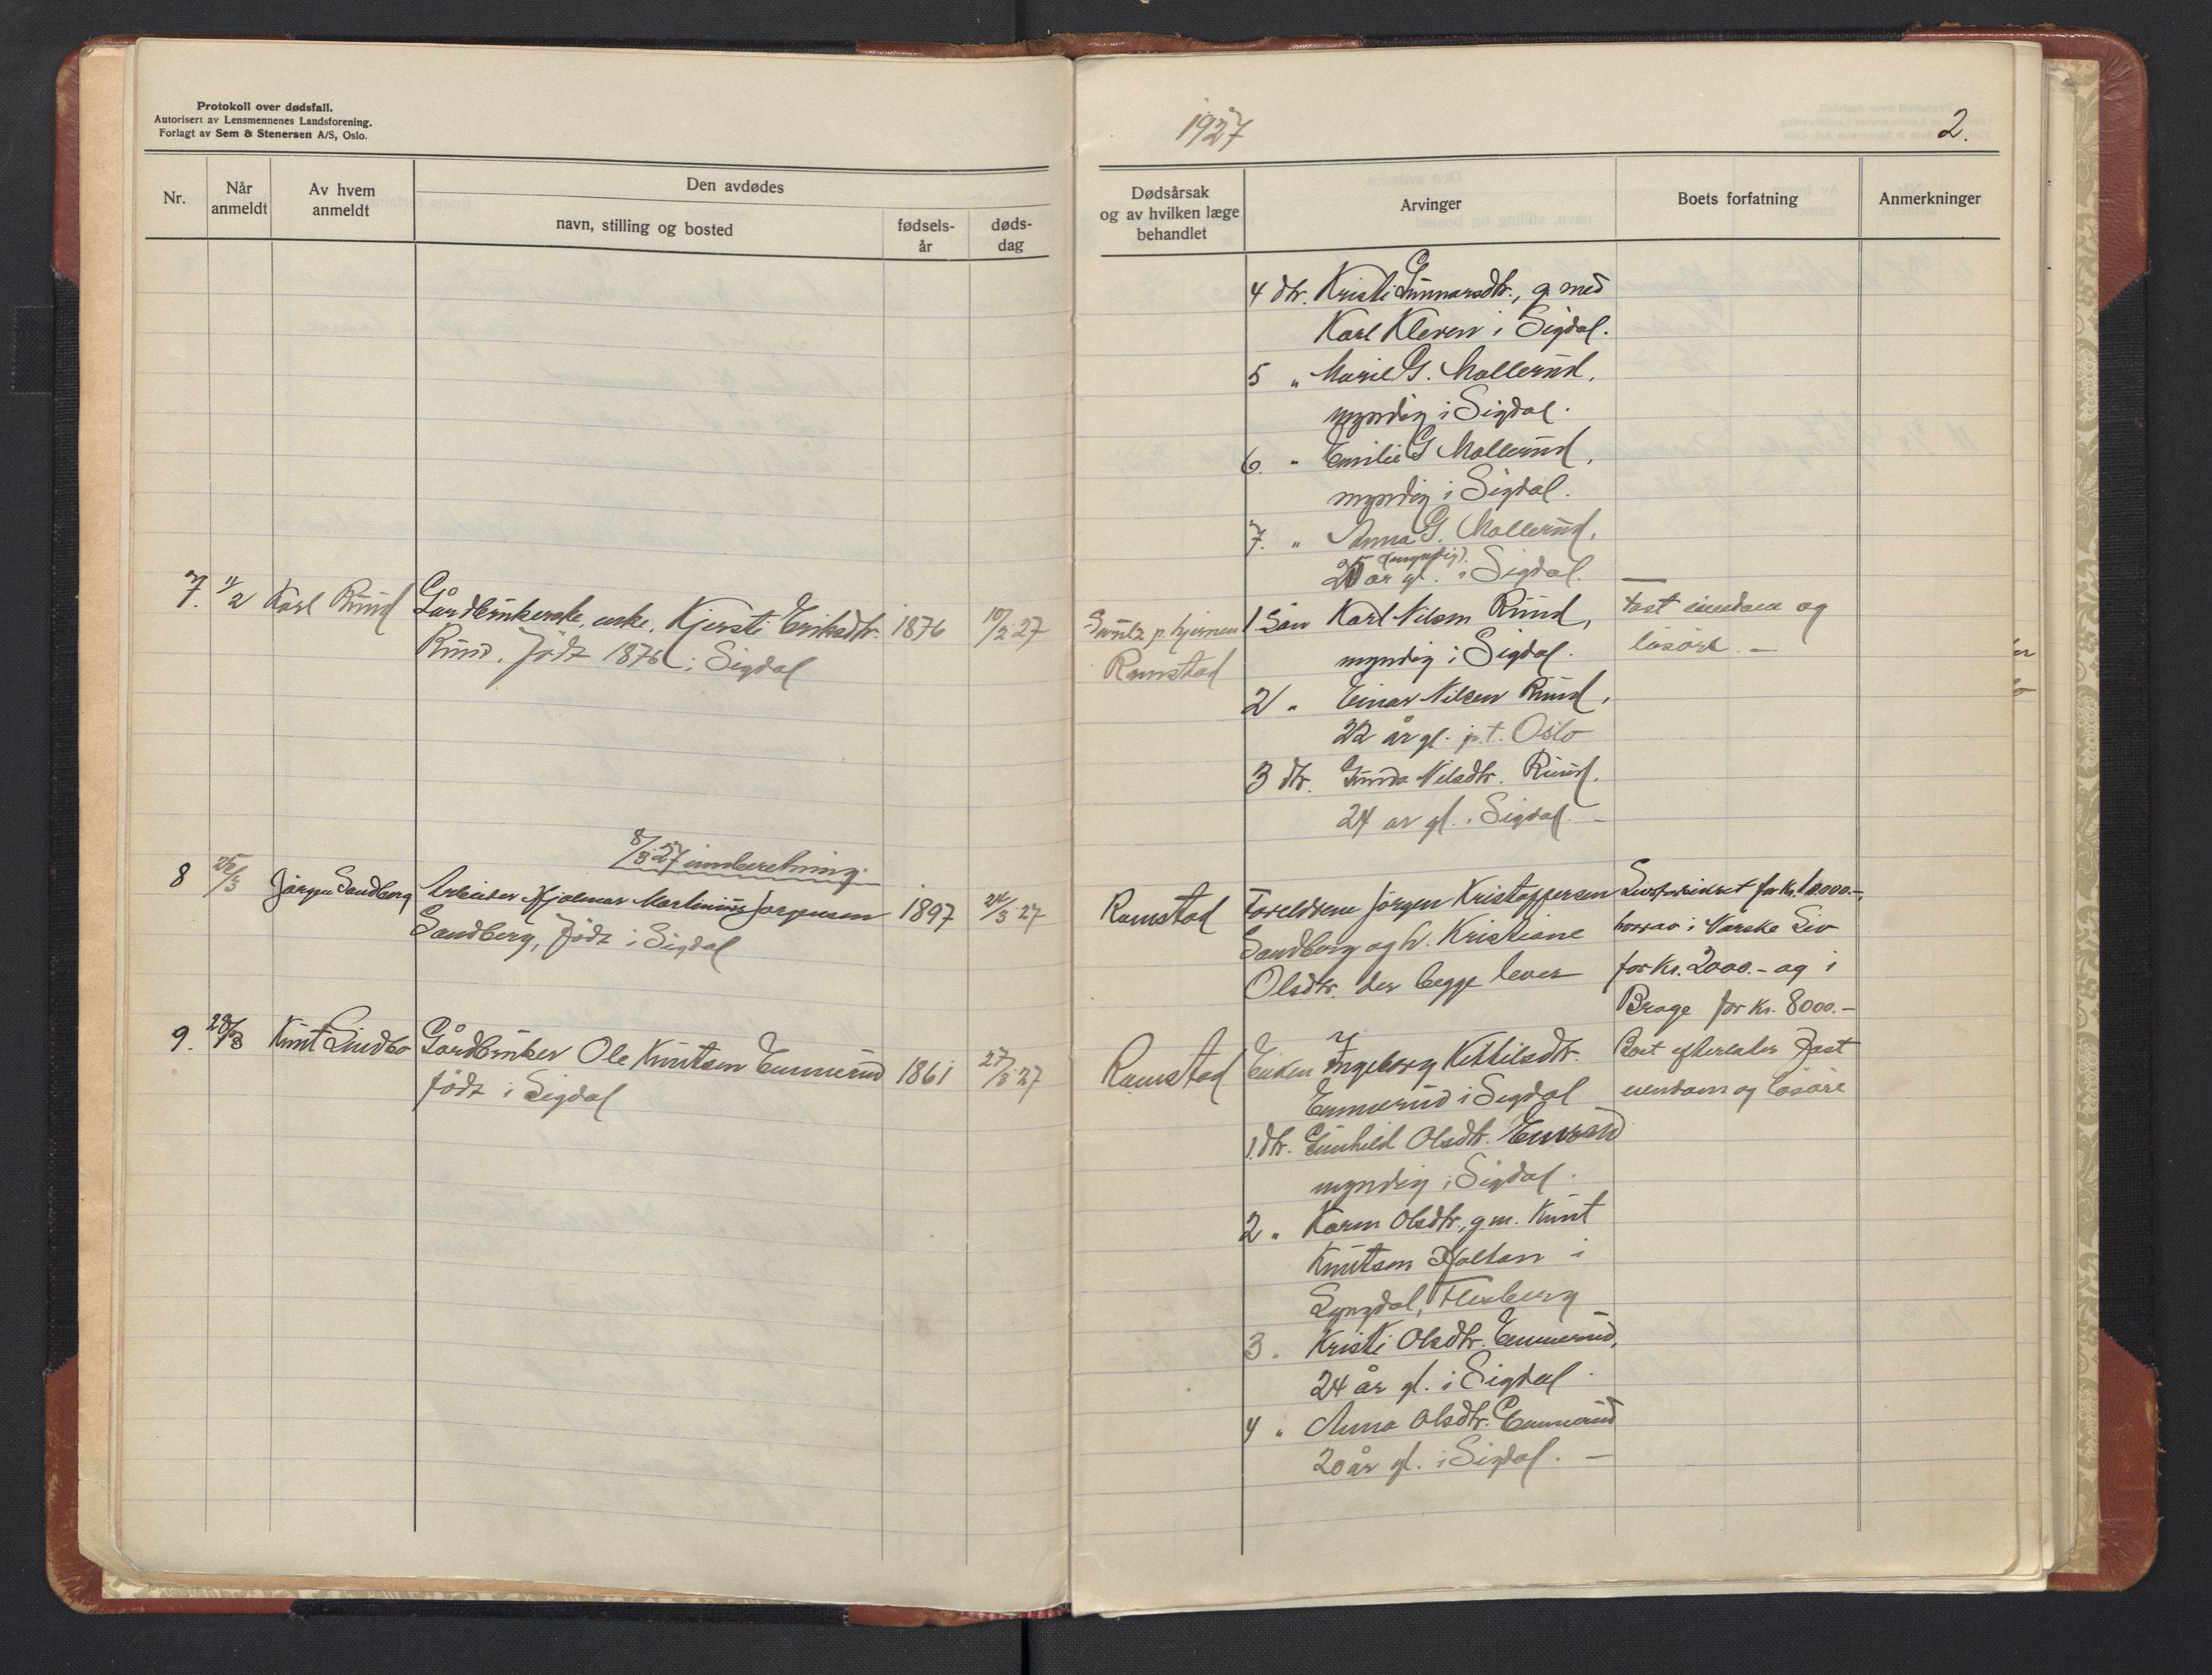 Protokoll over dødsfall.
Autorisert av Lensmennenes Landsforening.
Forlagt av Sem & Stenersen A/S, Oslo.
Nr.
Når anmeldt
Av hvem anmeldt
Den avdødes
navn, stilling og bosted
fødsels-år
døds-dag
7. 11/2 Karl Ruud Gårdbrukerske, enke, Kjersti Eriksdtr. 1876 10/2 27
Ruud. Født 1876 i Sigdal
8/3 27 innberetning.
8 25/3 Jørgen Sandberg Arbeider Hjalmar Martinius Jørgensen 1897 24/3 27
Sandberg, født i Sigdal
9. 28/3 Knut Lindbo Gårdbruker Ole Knutsen Emmerud 1861 27/3 27
født i Sigdal
1927
2.
Dødsårsak
og av hvilken læge
behandlet
Arvinger
Boets forfatning
Anmerkninger
4 dtr. Kristi Gunnarsdtr., g. med
Karl Kleven i Sigdal.
5 " Marie G. Mollerud,
myndig i Sigdal.
6. " Emilie G Mollerud,
myndig i Sigdal.
7. " Anna G. Mollerud,
(myndig).
25 år gl. i Sigdal.
Svulst p. hjernen 1 Søn Karl Nilsen Ruud, Fast eiendom og
Ramstad myndig i Sigdal. løsøre. —
2 " Einar Nilsen Ruud,
22 år gl. p.t. Oslo
3 dtr. Gunda Nilsdtr. Ruud.
24 år gl. i Sigdal. —
Ramstad Foreldrene Jørgen Kristoffersen Livsforsikret for Kr. 10.000.-,
Sandberg og h. Kristiane hvorav i Norske Liv
Olsdtr. der begge lever for Kr. 2000.- og i
Brage for Kr. 8000.-
Ramstad Enken Ingeborg Kittilsdtr. Boet efterlater Fast
Emmerud i Sigdal eiendom og løsøre
1. dtr. Gunhild Olsdtr. Emmerud
myndig i Sigdal.
2 " Karen Olsdtr., g.m. Knut
Knutsen Holtan i
Lyngdal, Flesberg
3 " Kristi Olsdtr. Emmerud,
24 år gl. i Sigdal.
4 " Anna Olsdtr. Emmerud
20 år gl. i Sigdal. —